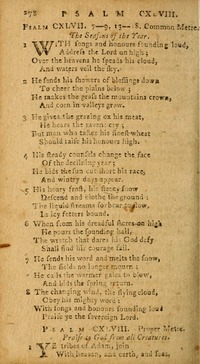 278 PSALM CXLVIII.
PSALM CXLVII. 7—9, 13—18. Common Metre.
The Seasons of the Year.
1 WITH songs and honours sounding loud,
Address the Lord on high;
Over the heavens he spreads his cloud,
And waters veil the sky.
2 He sends his showers of blessings down
To cheer the plains below;
He makes the grass the mountains crown,
And corn in valleys grow.
3 He gives the grazing ox his meat,
He hears the ravens cry;
But man who tastes his finest wheat
Should raise his honours high.
4 His steady counsels change the face
Of the declining year;
He bids the sun cut short his race,
And wintry days appear.
5 His hoary frost, his fleecy snow
Descend and clothe the ground;
The liquid streams forbear to flow,
In icy fetters bound.
6 When from his dreadful stores on high
He pours the sounding hail,
The wretch that dares his God defy
Shall find his courage fail.
7 He sends his word and melts the snow,
The fields no longer mourn;
He calls the warmer gales to blow,
And bids the spring return.
8 The changing wind, the flying cloud,
Obey his mighty word:
With songs and honours sounding loud
Praise ye the sovereign Lord.
PSALM CXLVIII. Proper Metre.
Praise to God from all Creatures.
1 YE tribes of Adam, join
With heaven, and earth, and seas,